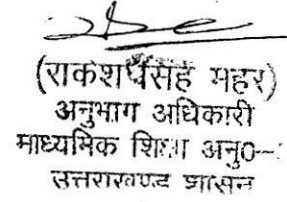 (राकेश सिंह महर)
अनुभाग अधिकारी
माध्यमिक शिक्षा अनु0-
उत्तराखण्ड शासन